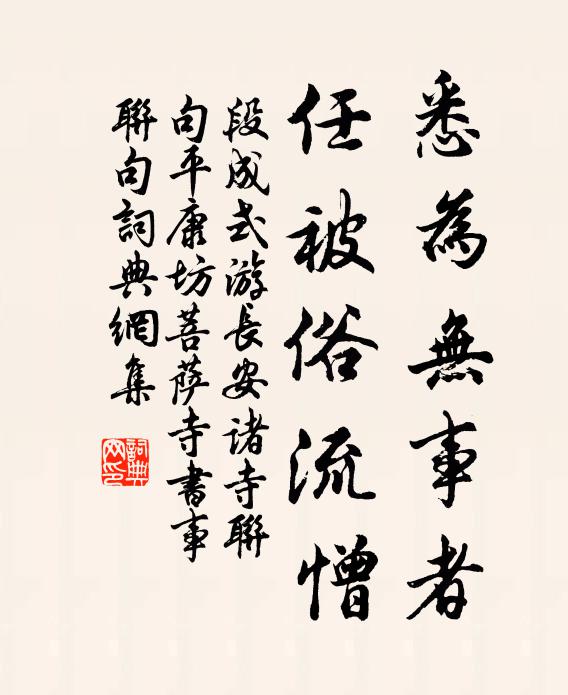 悉為無事者
任被俗流憎
段成式游長安諸寺聯
句平康坊菩薩寺書事
聯句詞典網集
詞典網印